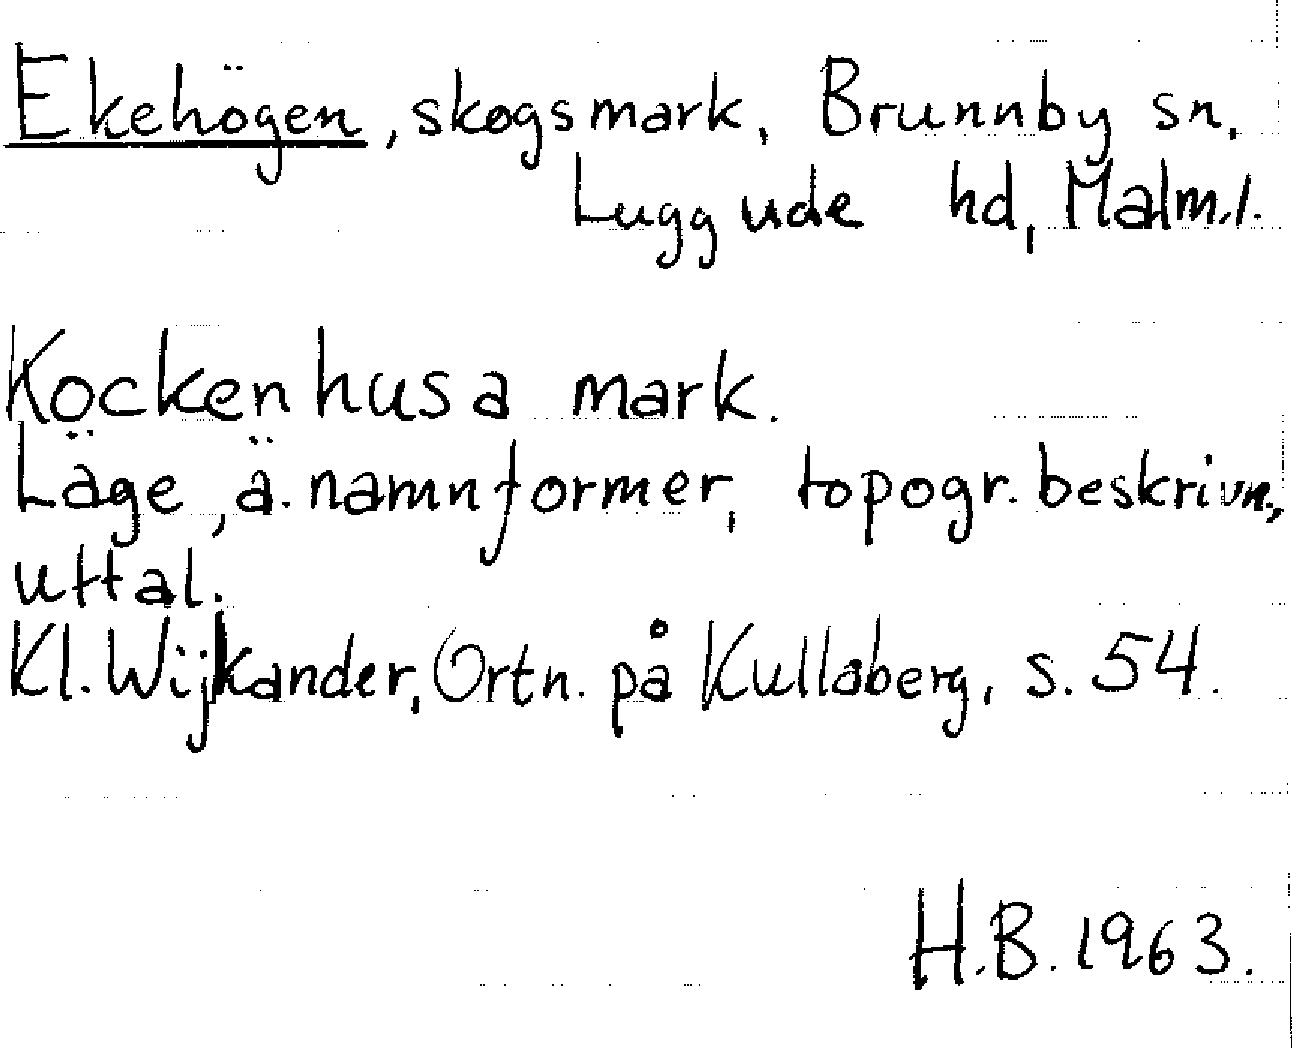 Ekehögen, skogsmark, Brunnby sn.
Luggude hd, Malm.l.
Kockenhusa mark.
Läge, ä. namnformer, topogr. beskrivn.,
uttal.
Kl. Wijkander, Ortn. på Kullaberg, s. 54.
H.B. 1963.